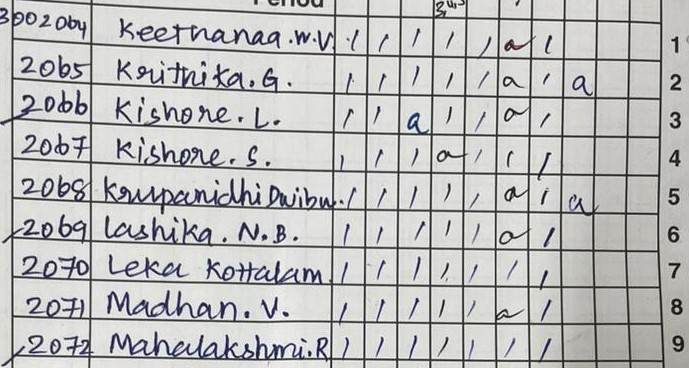 Period
3002064 Keethanaa.W.V. / / / / / a / 1
2065 Krithika.G. / / / / / a / a 2
2066 Kishore.L. / / a / / a / 3
2067 Kishore.S. / / / a / / / 4
2068 Krupanidhi Dwibw. / / / / / a / a 5
2069 Lashika.N.B. / / / / / a / 6
2070 Leka Kottalam / / / / / / / 7
2071 Madhan.V. / / / / / a / 8
2072 Mahalakshmi.R / / / / / / / 9